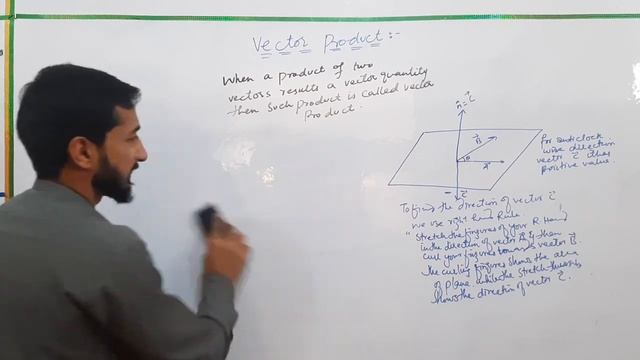 Vector Product:-
When a product of two
vectors results a vector quantity
then such product is called vector
product.
n̂ = C⃗
B⃗
θ
A⃗
-C⃗
for anticlock
wise direction
vector C⃗ has
positive value.
To find the direction of vector C⃗
we use right hand Rule.
"Stretch the figures of your R. Hand
in the direction of vector A⃗ & then
curl your figures towards vector B⃗.
The curling figures shows the area
of plane while the stretch thumb
shows the direction of vector C⃗.